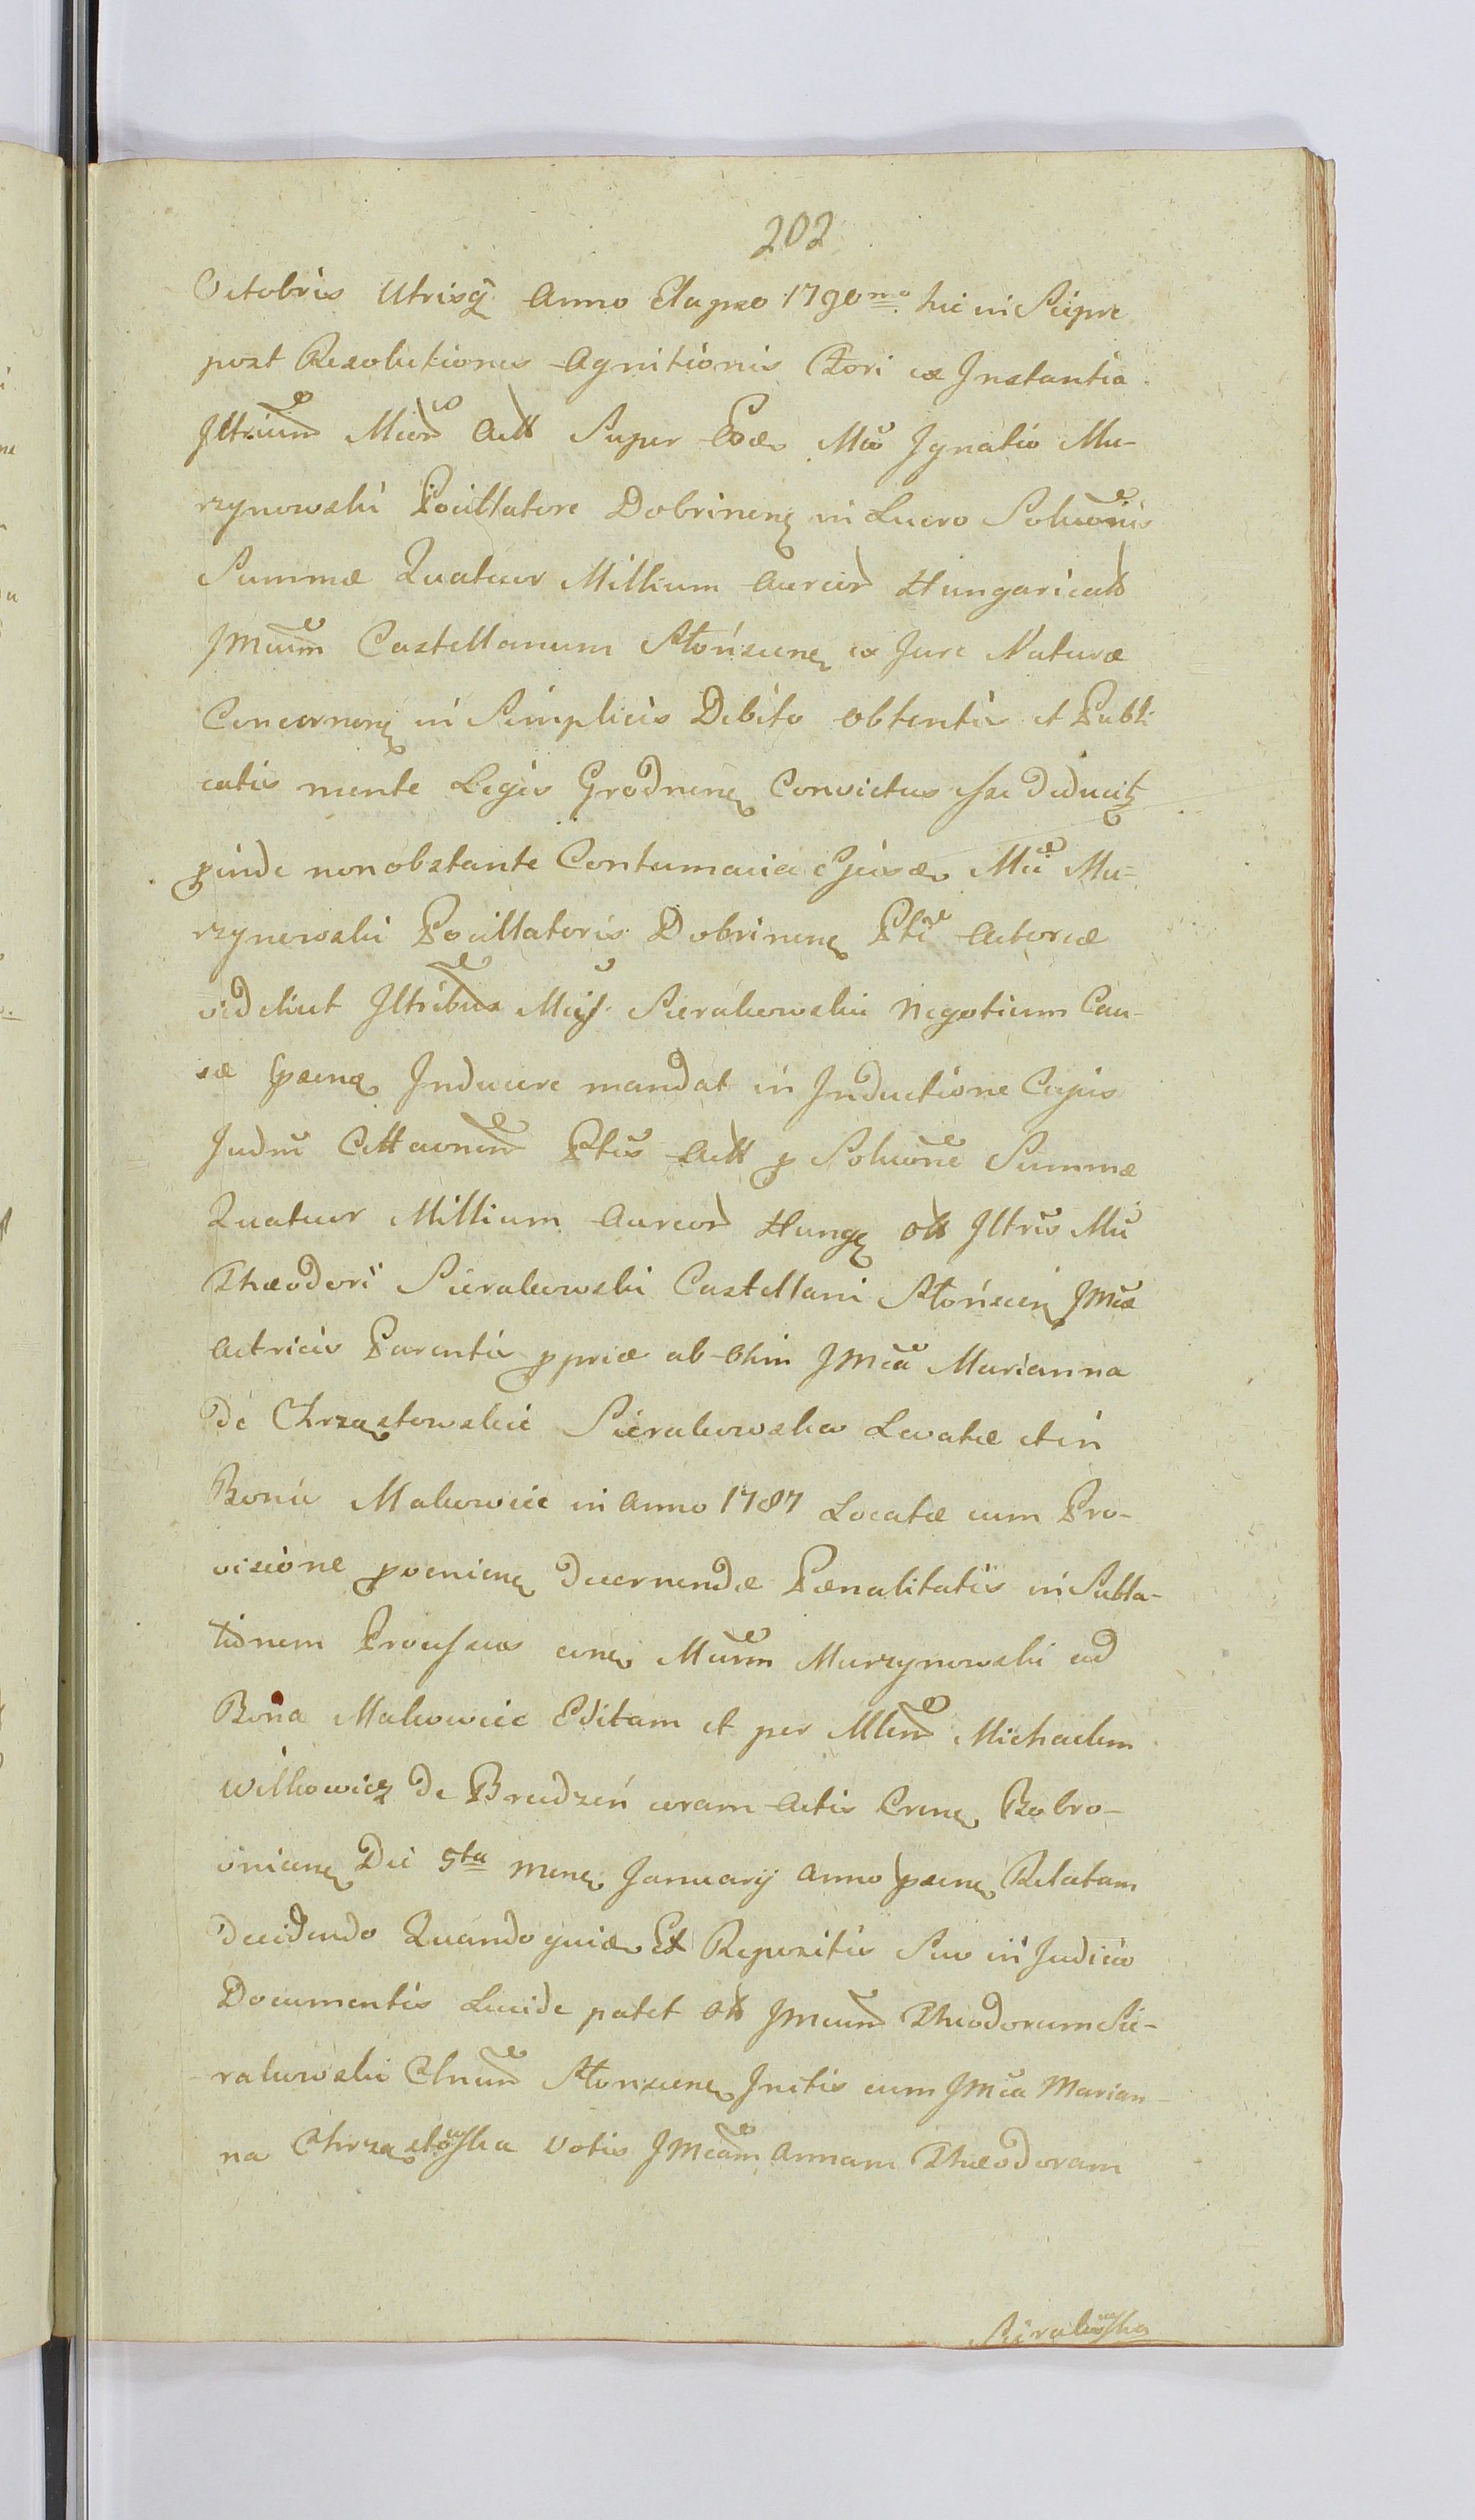 202
Octobris Utrisq Anno Elapso 1790mo hic in Lipne
post Resolutiones Agnitionis Ctori ex Instantia
Iltrium Mcor Actt Super Eod Mco Ignatio Mu-
rzynowski Pocillatore Dobrinen in Lucro Soluonis
Summæ Quatuor Millium Aureor Hungaricalt
JMcum Castellanum Słońscen ex Jure Naturæ
Concernen in Simplicis Debito obtentis et Publi
catis mente Legis Grodnen Convictus esse deducit
pinde non obstante Contumacia Ejusd Mci Mu-
rzynowski Pocillatoris Dobrinen Pti Actoreæ
videlicet Iltribus Mcis Sierakowskie Negotium Cau-
sæ psens Inducere mandat in Inductione Cujus
Judm Cttaonem Ptis Actt p Soluone Summæ
Quatuor Millium Aureor Hung ott Iltris Mci
Theodori Sierakowski Castellani Słońscen JMcæ
Actricis Parentis ppriæ ab olim JMca Marianna
de Chrząstowskie Sierakowska Levatæ et in
Bonis Makowiec in Anno 1787 Locatæ cum Pro-
visione pvenien decernendæ Pænalitatis in Subla-
tionem Processus cone Mcum Murzynowski ad
Bona Makowiec Editam et per Mlem Michaelem
Wilkowicz de Brudzeń coram Actis Crens Bobro-
onicens Die 5ta mens Januarij Anno psens Relatam
decidendo Quandoquid Ex Repositis Suo in Judicio
Documentis Lucide patet ott JMcum Theodorum Sie-
rakowski Clnum Słonscens Initis cum JMca Marian-
na Chrząstowska Votis JMcam Annam Theodoram
Sierakowska